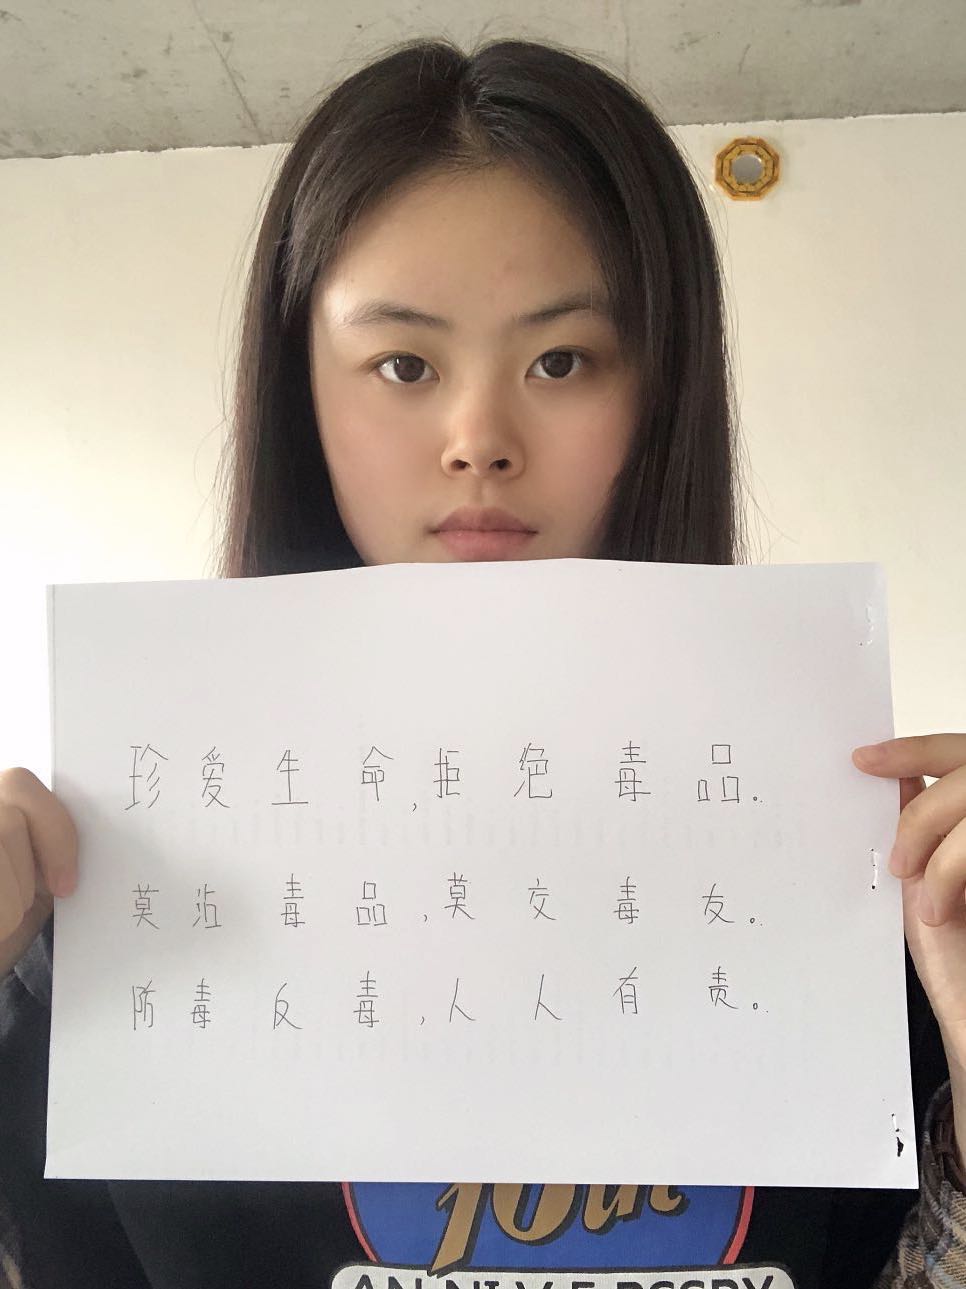 珍爱生命,拒绝毒品。
莫沾毒品,莫交毒友。
防毒反毒,人人有责。